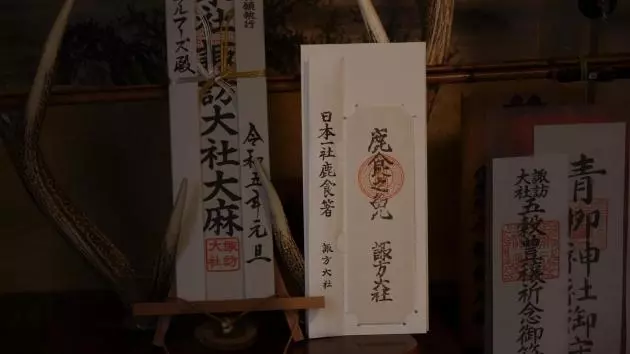 諏訪大社大麻
令和五年元旦
諏訪
大社
鹿食之免 諏方大社
日本一社鹿食箸 諏方大社
諏訪
大社
五穀豊穣祈念御
神社御